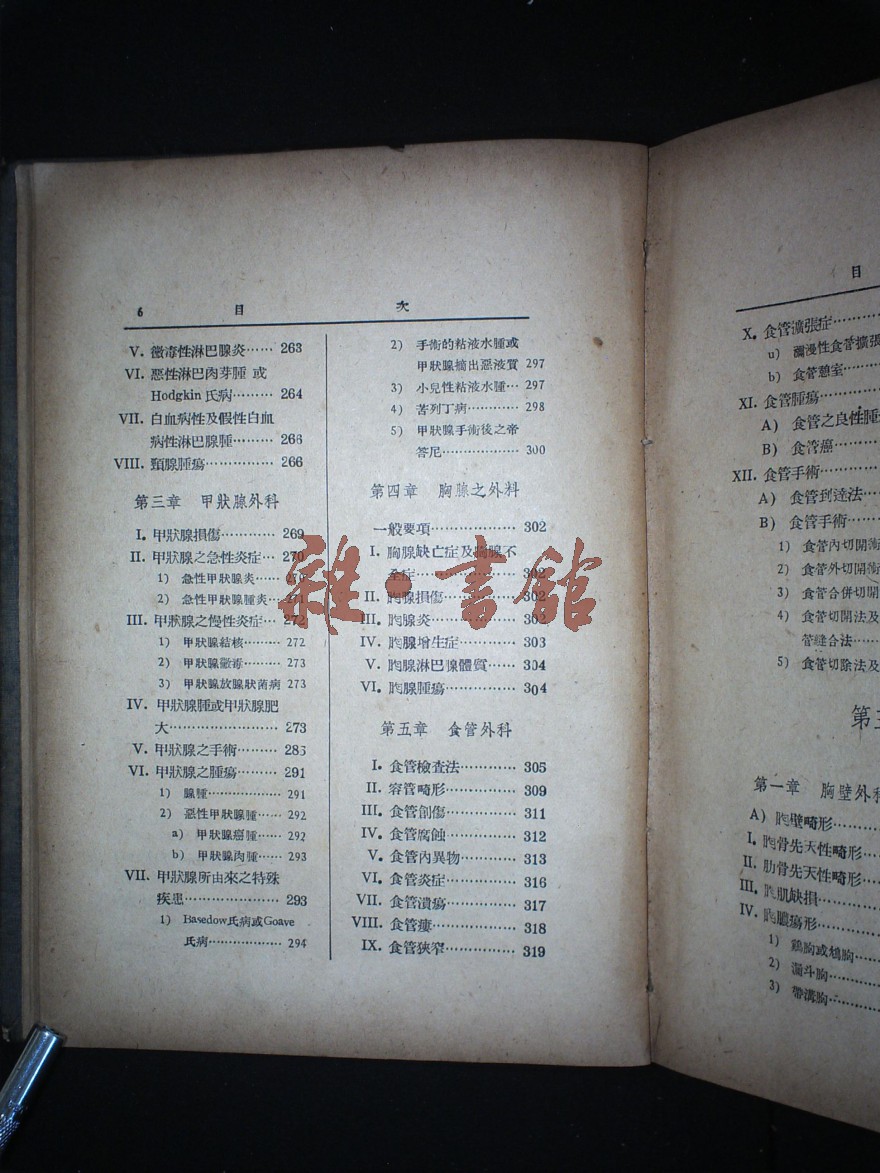 6 目 次
V. 黴毒性淋巴腺炎…… 263
VI. 惡性淋巴肉芽腫 或
Hodgkin 氏病……… 264
VII. 白血病性及假性白血
病性淋巴腺腫……… 266
VIII. 頸腺腫瘍…………… 266
第三章 甲狀腺外科
I. 甲狀腺損傷………… 269
II. 甲狀腺之急性炎症… 270
1) 急性甲狀腺炎…… 270
2) 急性甲狀腺腫炎… 271
III. 甲狀腺之慢性炎症… 272
1) 甲狀腺結核……… 272
2) 甲狀腺黴毒……… 273
3) 甲狀腺放腺狀菌病 273
IV. 甲狀腺腫或甲狀腺肥
大…………………… 273
V. 甲狀腺之手術……… 286
VI. 甲狀腺之腫瘍……… 291
1) 腺腫……………… 291
2) 惡性甲狀腺腫…… 292
a) 甲狀腺癌腫…… 292
b) 甲狀腺肉腫…… 293
VII. 甲狀腺所由來之特殊
疾患………………… 293
1) Basedow氏病或Goave
氏病……………… 294
2) 手術的粘液水腫或
甲狀腺摘出惡液質 297
3) 小兒性粘液水腫… 297
4) 苦列丁病………… 298
5) 甲狀腺手術後之帝
答尼……………… 300
第四章 胸腺之外科
一般要項………………… 302
I. 胸腺缺亡症及胸腺不
全症………………… 302
II. 胸腺損傷…………… 302
III. 胸腺炎……………… 302
IV. 胸腺增生症………… 303
V. 胸腺淋巴腺體質…… 304
VI. 胸腺腫瘍…………… 304
第五章 食管外科
I. 食管檢查法………… 305
II. 容管畸形…………… 309
III. 食管創傷…………… 311
IV. 食管腐蝕…………… 312
V. 食管內異物………… 313
VI. 食管炎症…………… 316
VII. 食管潰瘍…………… 317
VIII. 食管瘻……………… 318
IX. 食管狹窄…………… 319
雜·書館
目
X. 食管擴張症…………
a) 瀰漫性食管擴張
b) 食管憩室………
XI. 食管腫瘍……………
A) 食管之良性腫
B) 食管癌…………
XII. 食管手術……………
A) 食管到達法……
B) 食管手術………
1) 食管內切開術
2) 食管外切開術
3) 食管合併切開
4) 食管切開法及
管縫合法……
5) 食管切除法及
第三
第一章 胸壁外科
A) 胸壁畸形…………
I. 胸骨先天性畸形……
II. 肋骨先天性畸形……
III. 胸肌缺損……………
IV. 胸膿瘍形……………
1) 鷄胸或尩胸……
2) 漏斗胸…………
3) 帶溝胸…………